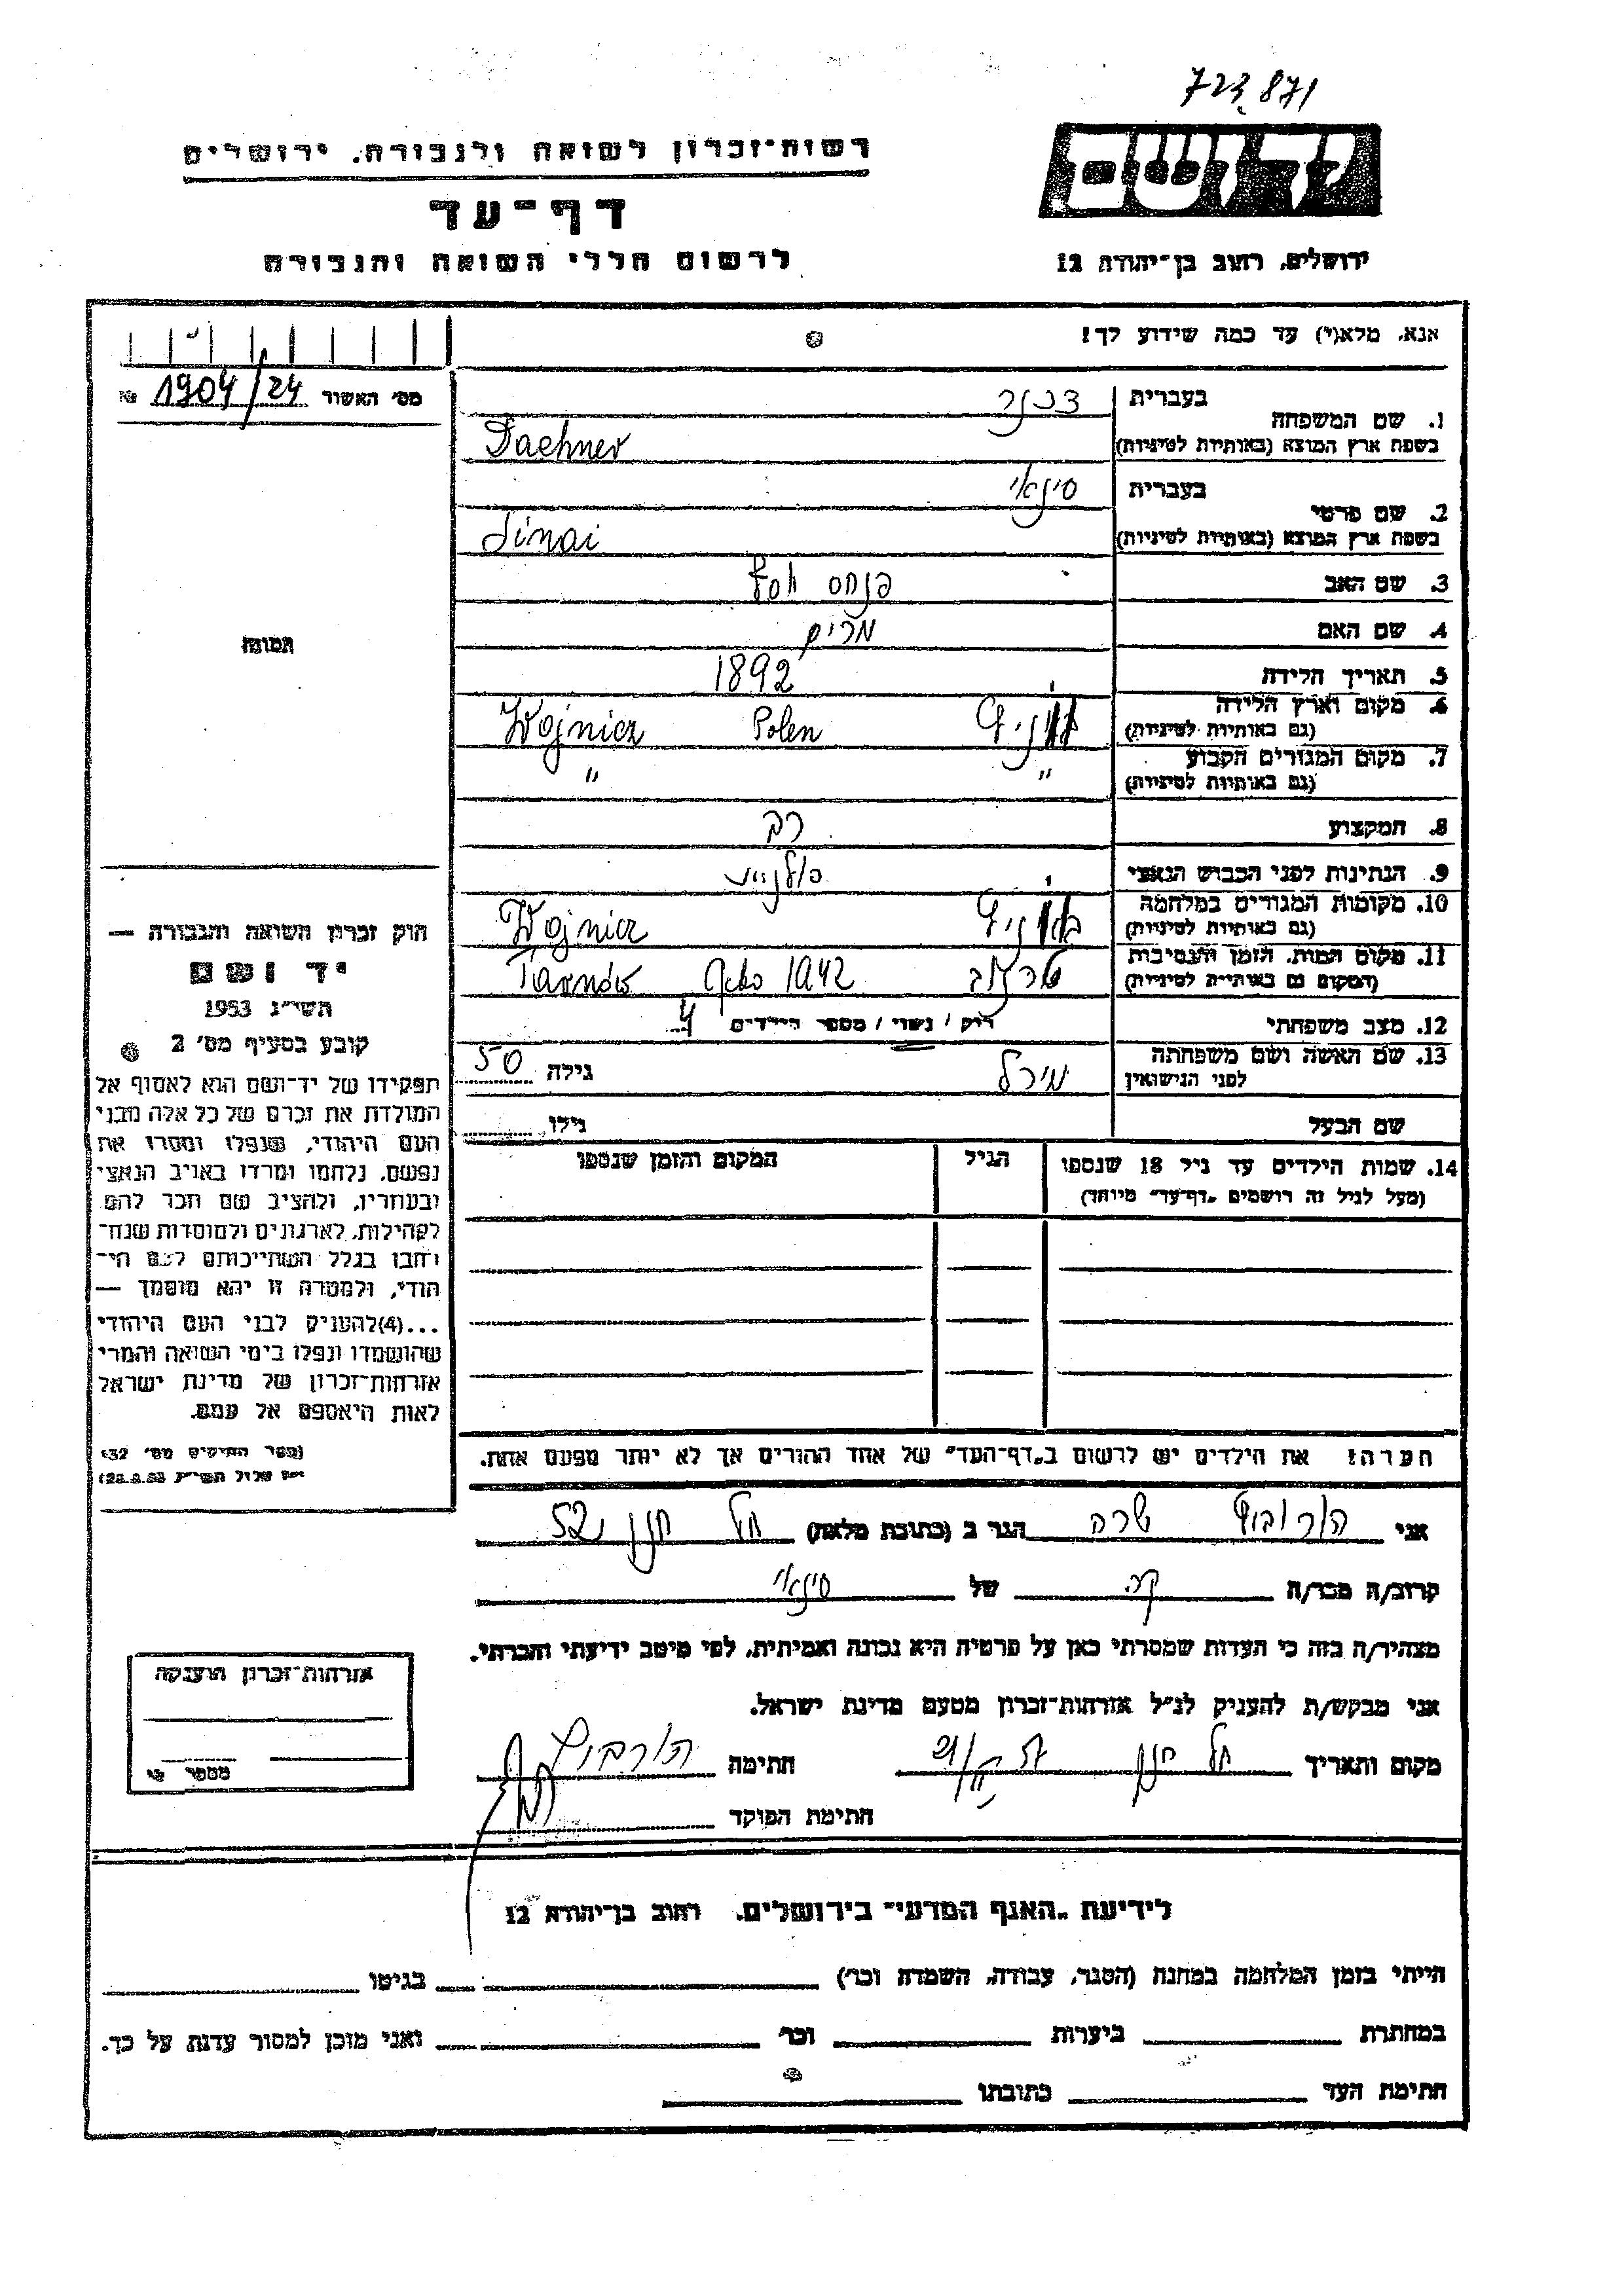 723.871
רשות-זכרון לשואה ולגבורה, ירושלים
יד ושם
דף-עד
לרשום חללי השואה והגבורה
ירושלים, רחוב בן-יהודה 12
אנא, מלא(י) עד כמה שידוע לך!
מס׳ האשור 1904/24 №
1. שם המשפחה
בעברית דכנר
בשפת ארץ המוצא (באותיות לטיניות) Dachner
2. שם פרטי
בעברית סינאי
בשפת ארץ המוצא (באותיות לטיניות) Sinai
3. שם האב פנחס
4. שם האם מרים
תמונה
5. תאריך הלידה 1892
6. מקום וארץ הלידה
(גם באותיות לטיניות) Polen Wojnicz
7. מקום המגורים הקבוע
(גם באותיות לטיניות) " "
8. המקצוע רב
9. הנתינות לפני הכבוש הנאצי
10. מקומות המגורים במלחמה
(גם באותיות לטיניות) Wojnicz
11. מקום המות, הזמן והנסיבות
(המקום גם באותיות לטיניות) טרנוב Geto 1942 Tarnów
12. מצב משפחתי רווק / נשוי / מספר הילדים 4
13. שם האשה ושם משפחתה
לפני הנישואין מירל גילה 50
שם הבעל גילו
14. שמות הילדים עד גיל 18 שנספו הגיל המקום והזמן שנספו
(מעל לגיל זה רושמים "דף-עד" מיוחד)
הערה! את הילדים יש לרשום ב"דף-העד" של אחד ההורים אך לא יותר מפעם אחת.
חוק זכרון השואה והגבורה —
יד ושם
תשי״ג 1953
קובע בסעיף מס׳ 2
תפקידו של יד-ושם הוא לאסוף אל
המולדת את זכרם של כל אלה מבני
העם היהודי, שנפלו ומסרו את
נפשם, נלחמו ומרדו באויב הנאצי
ובעוזריו, ולהציב שם וזכר להם
לקהילות, לארגונים ולמוסדות שנח-
רבו בגלל השתייכותם לעם הי-
הודי, ולמטרה זו יהא מוסמך —
...(4)להעניק לבני העם היהודי
שהושמדו ונפלו בימי השואה והמרי
אזרחות-זכרון של מדינת ישראל
לאות היאספם אל עמם.
(ספר החוקים מס׳ 132
אלול תשי״ג 28.8.53)
אני הורוביץ שרה הגר ב (כתובת מלאה) תל חנן 52
קרוב/ה מכר/ה של סינאי
מצהיר/ה בזה כי העדות שמסרתי כאן על פרטיה היא נכונה ואמיתית, לפי מיטב ידיעתי והכרתי.
אני מבקש/ת להעניק לנ״ל אזרחות-זכרון מטעם מדינת ישראל.
מקום ותאריך תל חנן חתימה הורוביץ
חתימת הפוקד
אזרחות-זכרון הוענקה
מספר
לידיעת "האגף המדעי" בירושלים, רחוב בן-יהודה 12
הייתי בזמן המלחמה במחנה (הסגר, עבודה, השמדה וכו׳) בגיטו
במחתרת ביערות וכו׳ ואני מוכן למסור עדות על כך.
חתימת העד כתובתו